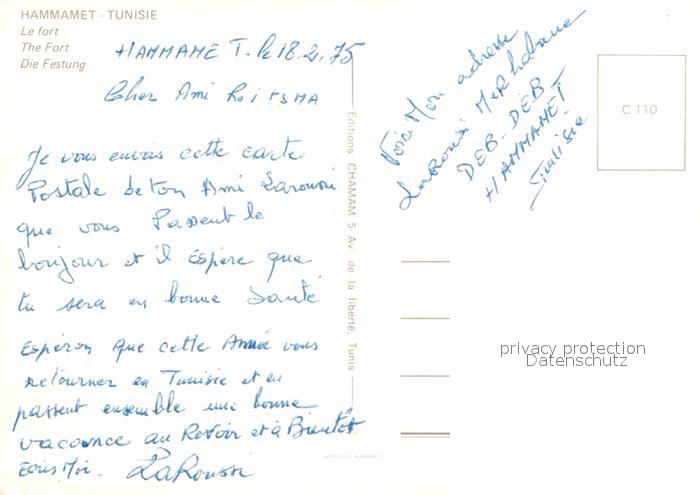 HAMMAMET - TUNISIE
Le fort
The Fort
Die Festung
HAMMAME T. le 18.2.75
Cher Ami
Je vous envois cette carte
Postale de ton Ami Laroussi
que vous Passent le
bonjour et il Espère que
tu sera en bonne Santé
Espéron que cette Année vous
retourner en Tunisie et en
passent ensemble une bonne
vacance au Revoir et à Bientôt
Ecris Moi. LaRoussi
Editions CHAMAM 5 Av. de la liberté, Tunis
Voici Mon adresse
LaRoussi
DEB-DEB
HAMMAMET
Tunisie
C 110
privacy protection
Datenschutz